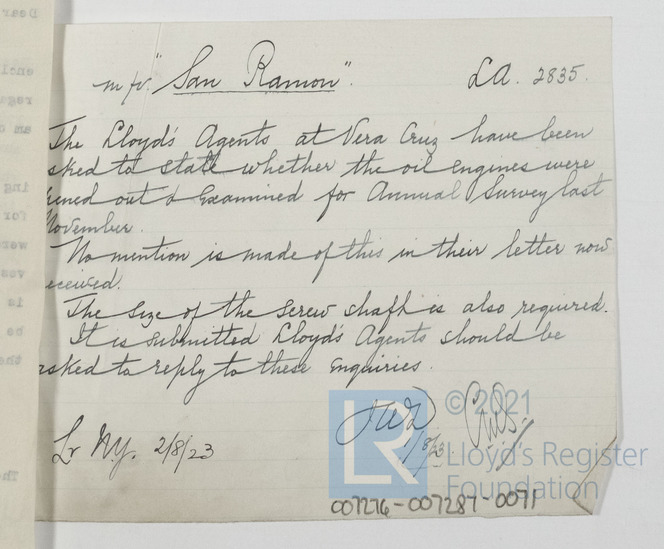 m/v. "San Ramon". LA. 2835.
The Lloyd's Agents at Vera Cruz have been
sked to state whether the oil engines were
ened out & examined for Annual Survey last
November.
No mention is made of this in their letter now
eceived.
The size of the screw shaft is also required.
It is submitted Lloyd's Agents should be
asked to reply to these enquiries.
Lr NY. 2/8/23
/8/23
LR
© 2021
Lloyd's Register
Foundation
007276-007287-0071
Dear
encl
regu
am o
ing
for
were
ves
is
be
the
The